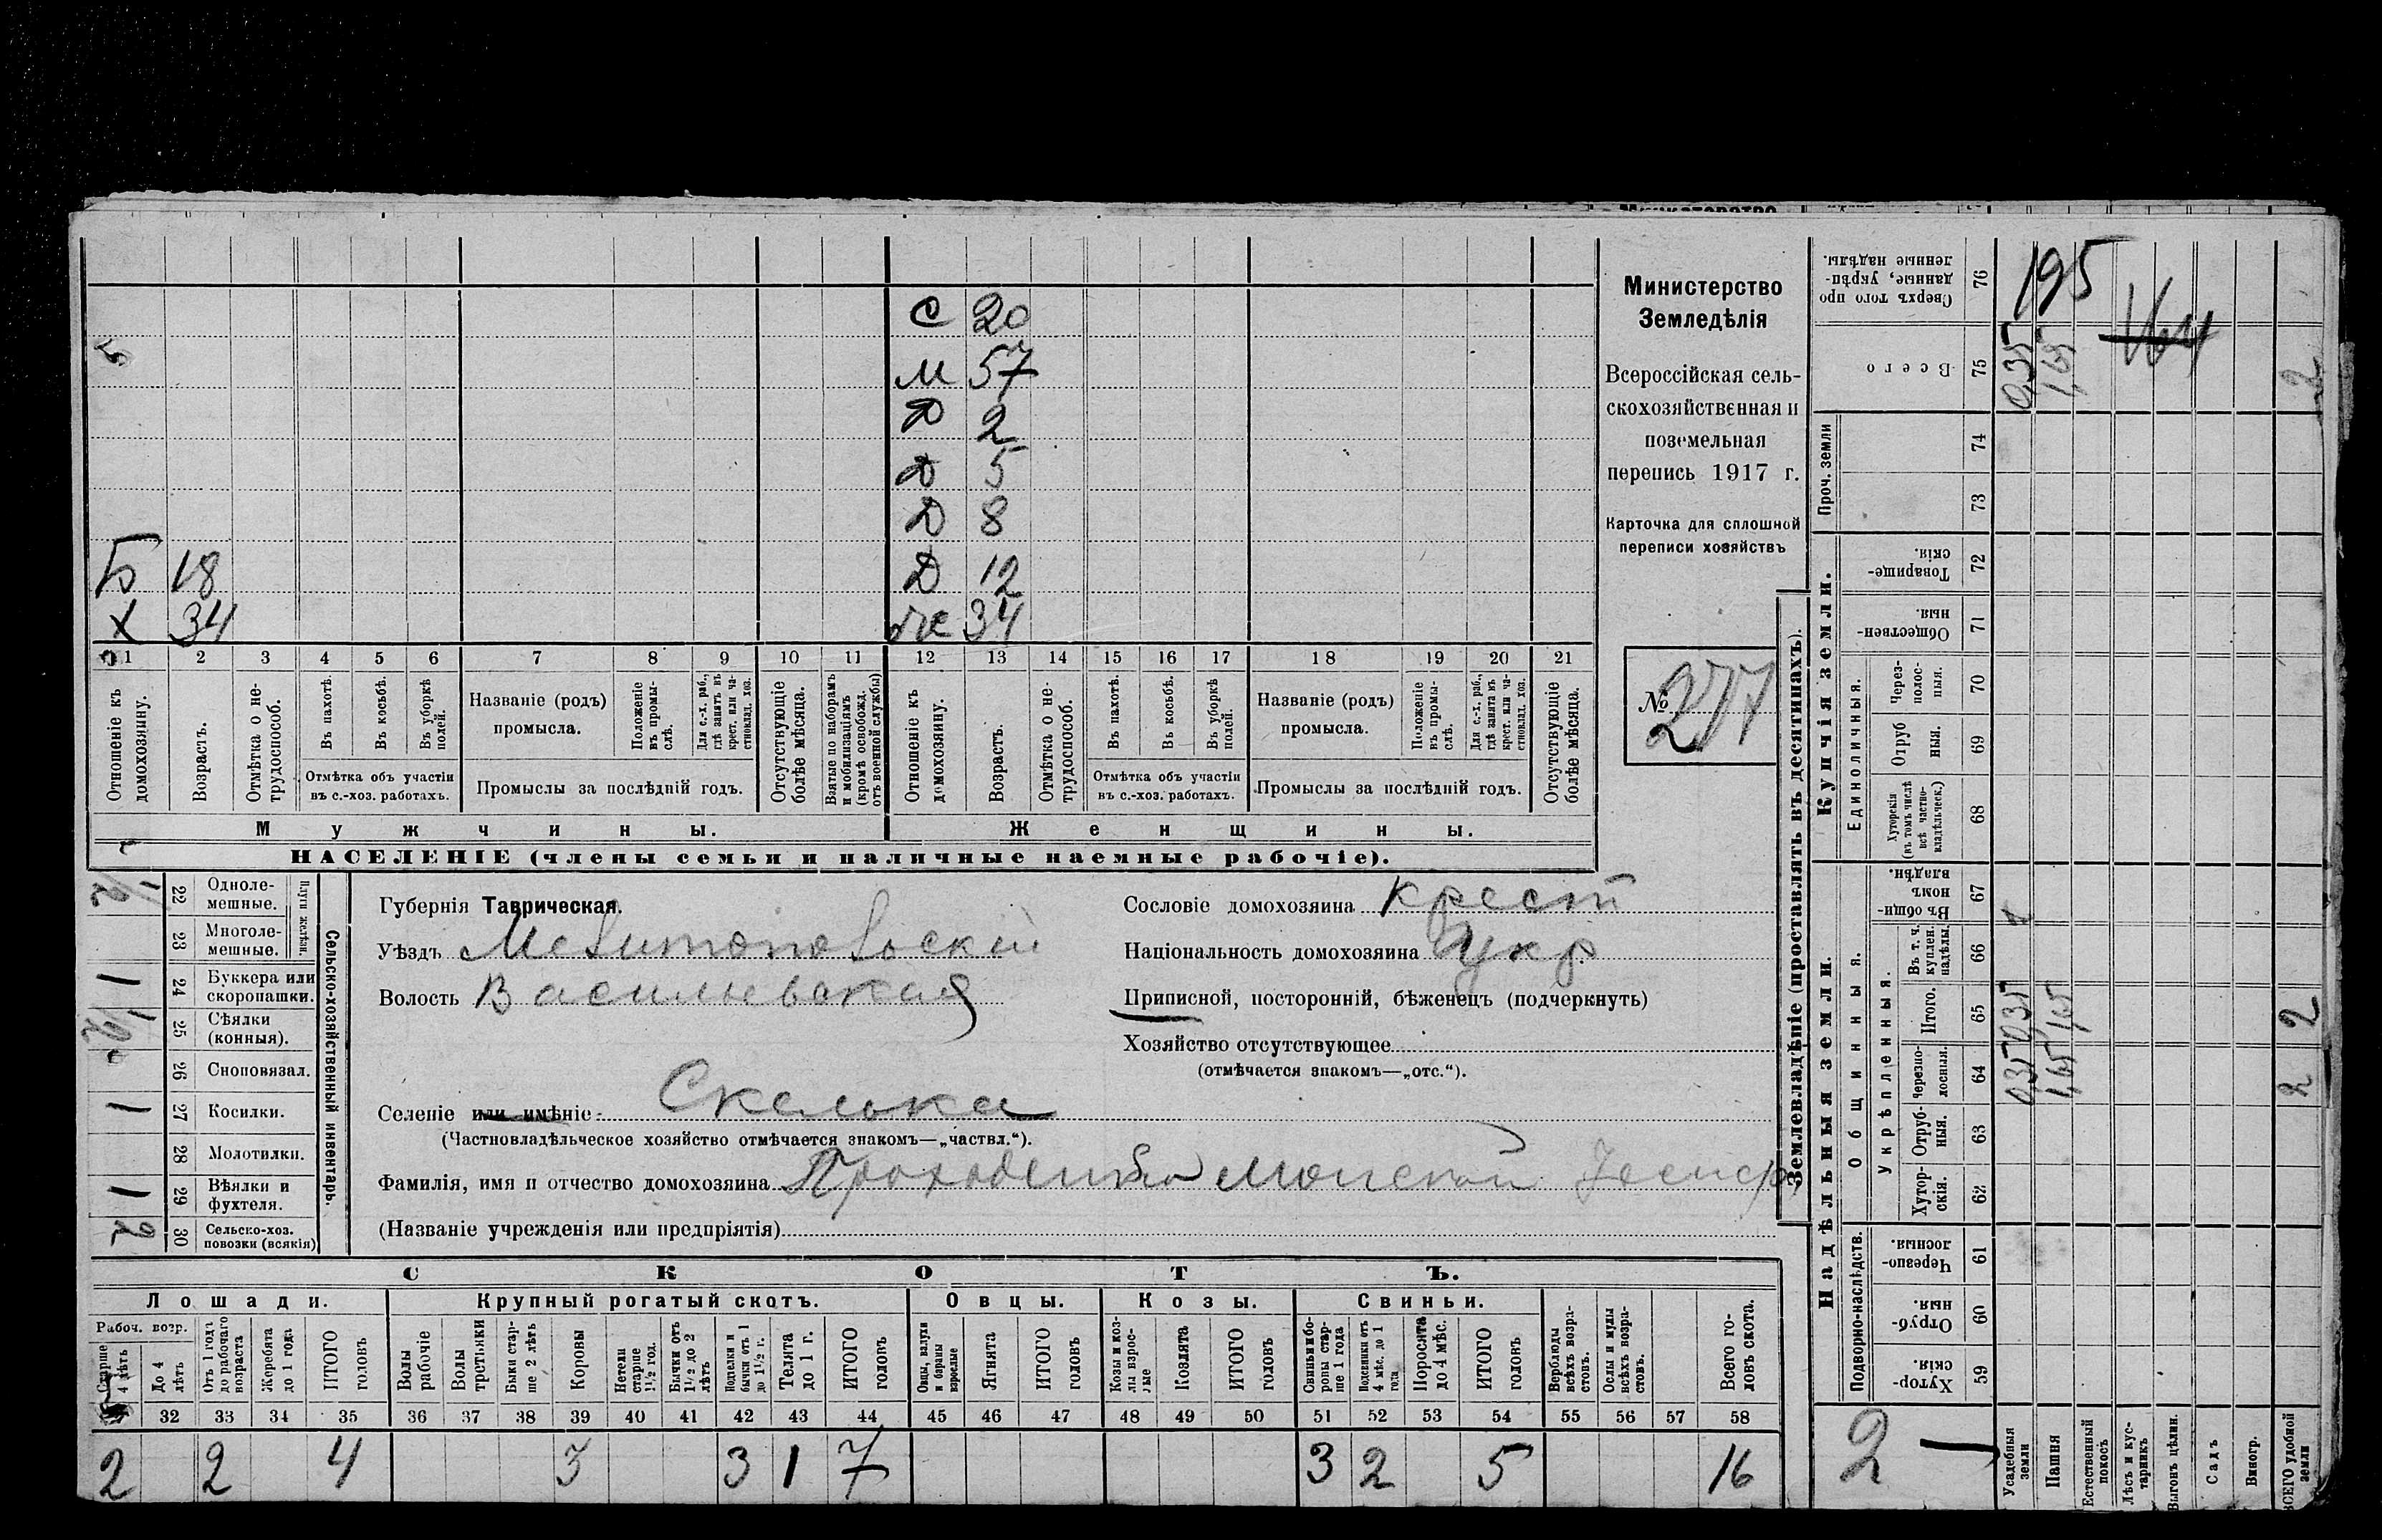 С 20
5 М 57
Д 2
Д 5
Д 8
Б 18 Д 12
Х 34 же 34
1 2 3 4 5 6 7 8 9 10 11 12 13 14 15 16 17 18 19 20 21
Отношеніе къ домохозяину.
Возрастъ.
Отмѣтка о не-трудоспособ.
Въ пахотѣ.
Въ косьбѣ.
Въ уборкѣ полей.
Отмѣтка объ участіи
въ с.-хоз. работахъ.
Названіе (родъ)
промысла.
Положеніе въ промы-слѣ.
Для с.-х. раб., гдѣ занятъ въ крест. или ча-стновлад. хоз.
Промыслы за послѣдній годъ.
Отсутствующіе болѣе мѣсяца.
Взятые по наборамъ и мобилизаціямъ (кромѣ освобожд. отъ военной службы)
Отношеніе къ домохозяину.
Возрастъ.
Отмѣтка о не-трудоспособ.
Въ пахотѣ.
Въ косьбѣ.
Въ уборкѣ полей.
Отмѣтка объ участіи
въ с.-хоз. работахъ.
Названіе (родъ)
промысла.
Положеніе въ промы-слѣ.
Для с.-х. раб., гдѣ занята въ крест. или ча-стновлад. хоз.
Промыслы за послѣдній годъ.
Отсутствующіе болѣе мѣсяца.
Мужчины. Женщины.
НАСЕЛЕНІЕ (члены семьи и наличные наемные рабочіе).
Министерство
Земледѣлія
Всероссійская сель-
скохозяйственная и
поземельная
перепись 1917 г.
Карточка для сплошной
переписи хозяйствъ
№ 277
22 Одноле-мешные.
23 Многоле-мешные.
Плуги желѣзн.
1 24 Буккера или скоропашки.
25 Сѣялки (конныя).
26 Сноповязал.
1 27 Косилки.
28 Молотилки.
1 29 Вѣялки и фухтеля.
2 30 Сельско-хоз. повозки (всякія)
Сельско-хозяйственный инвентарь.
Губернія Таврическая.
Уѣздъ Мелитопольскій
Волость Васильевская
Селеніе или имѣніе Скелька
(Частновладѣльческое хозяйство отмѣчается знакомъ—„частвл.“).
Фамилія, имя и отчество домохозяина
(Названіе учрежденія или предпріятія)
Сословіе домохозяина крест
Національность домохозяина Укр
Приписной, посторонній, бѣженецъ (подчеркнуть)
Хозяйство отсутствующее
(отмѣчается знакомъ—„отс.“).
СКОТЪ.
Лошади. Крупный рогатый скотъ. Овцы. Козы. Свиньи.
Рабоч. возр.
Старше 4 лѣтъ
До 4 лѣтъ
Отъ 1 года до рабочаго возраста
Жеребята до 1 года
ИТОГО головъ
Волы рабочіе
Волы третьяки
Быки стар-ше 2 лѣтъ
Коровы
Нетели старше 1½ год.
Бычки отъ 1½ до 2 лѣтъ
Подтелки и бычки отъ 1 до 1½ г.
Телята до 1 г.
ИТОГО головъ
Овцы, валухи и бараны взрослые
Ягнята
ИТОГО головъ
Козы и коз-лы взрос-лые
Козлята
ИТОГО головъ
Свиньи и бо-ровы стар-ше 1 года
Подсвинки отъ 4 мѣс. до 1 года
Поросята до 4 мѣс.
ИТОГО головъ
Верблюды всѣхъ возра-стовъ.
Ослы и мулы всѣхъ возра-стовъ.
Всего го-ловъ скота.
32 33 34 35 36 37 38 39 40 41 42 43 44 45 46 47 48 49 50 51 52 53 54 55 56 57 58
2 2 4 3 3 1 7 3 2 5 16
Землевладѣніе (проставлять въ десятинахъ).
Сверхъ того про-данные, укрѣп-ленные надѣлы. 76
195
Всего 75 0,35 1,65 2
164
Проч. земли 74 73
Купчія земли.
Товарище-скія. 72
Обществен-ныя. 71
Единоличныя.
Через-полос-ныя. 70
Отруб-ныя. 69
Хуторскія (въ томъ числѣ всѣ частно-владѣльческ.) 68
Надѣльныя земли.
Общинныя.
Въ общи-номъ владѣн. 67
Укрѣпленныя.
Въ т. ч. куплен. надѣлы. 66
Итого. 65 0,35 1,65 2
черезпо-лосныя. 64 0,35 1,65 2
Отруб-ныя. 63
Хутор-скія. 62
Подворно-наслѣдств.
Черезпо-лосныя. 61
Отруб-ныя. 60
Хутор-скія. 59
2 —
Усадебныя земли
Пашня
Естественный покосъ
Лѣсъ и кус-тарникъ
Выгонъ цѣлин.
Садъ
Виногр.
ВСЕГО удобной земли